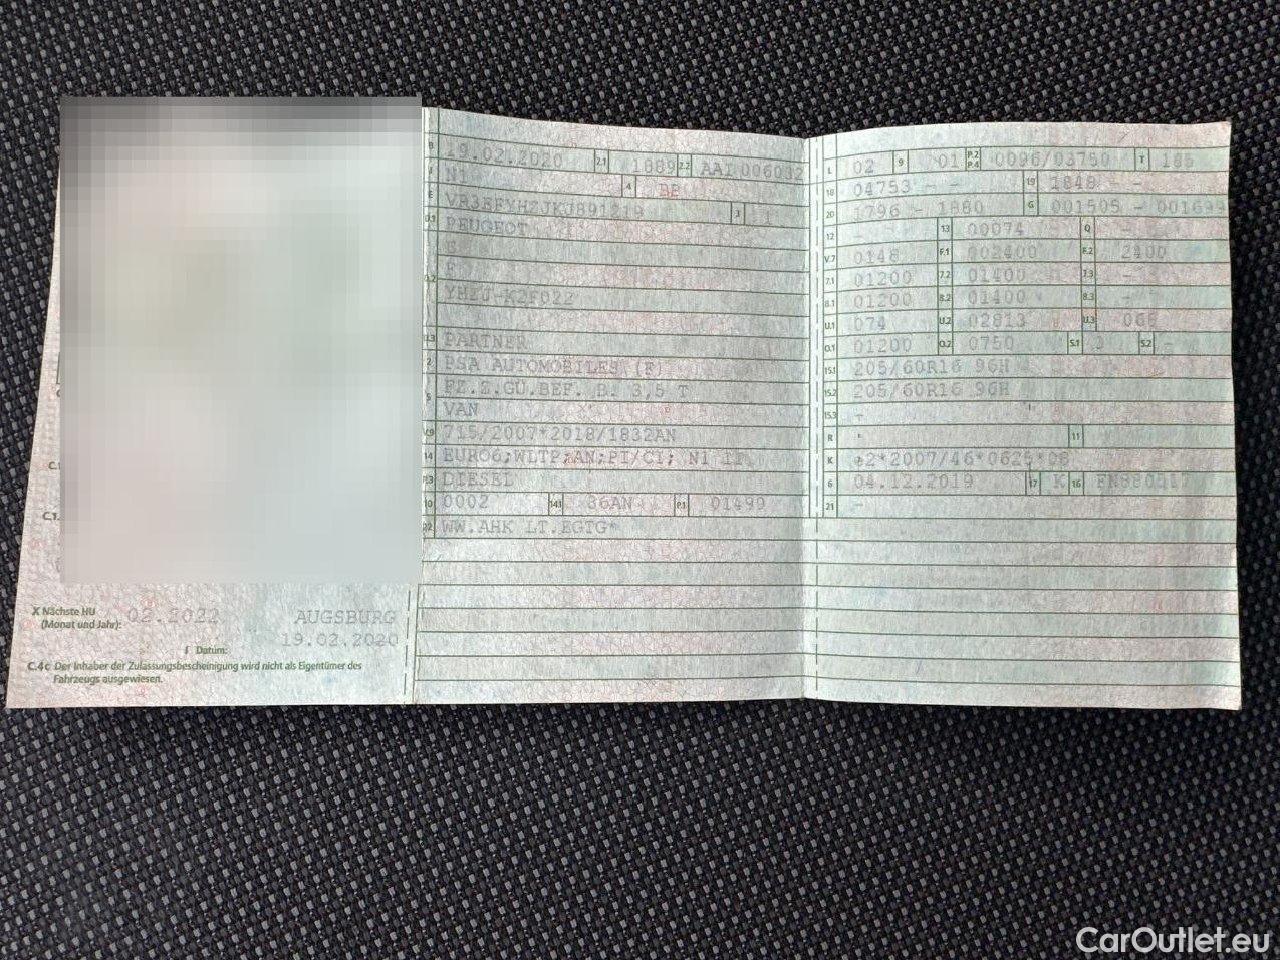 X Nächste HU
(Monat und Jahr): 02.2022 AUGSBURG
I Datum: 19.02.2020
C.4c Der Inhaber der Zulassungsbescheinigung wird nicht als Eigentümer des
Fahrzeugs ausgewiesen.
B 19.02.2020 2.1 1889 2.2 AAI
J N1 4 BB
3 1
D.1 PEUGEOT
E
F
D.3 PARTNER
2 PSA AUTOMOBILES (F)
5 FZ.Z.GÜ.BEF. B. 3,5 T
VAN
V.9 715/2007*2018/1832AN
14 EURO6;WLTP;AN;PI/CI; N1 II
P.3 DIESEL
10 0002 14.1 36AN P.1 01499
22 WW.AHK LT.EGTG*
L 02 9 01 P.2 P.4 0096/03750 T 185
18 04753 - - 19 1848 - -
20 1796 - 1880 G 001505 - 001699
12 - 13 00074 Q -
V.7 0148 F.1 002400 F.2 2400
7.1 01200 7.2 01400 7.3 -
8.1 01200 8.2 01400 8.3 -
U.1 074 U.2 02813 U.3 068
O.1 01200 O.2 0750 S.1 3 S.2 -
15.1 205/60R16 96H
15.2 205/60R16 96H
15.3 -
R - 11
K e2*2007/46*0625*08
6 04.12.2019 17 K 16
21 -
CarOutlet.eu